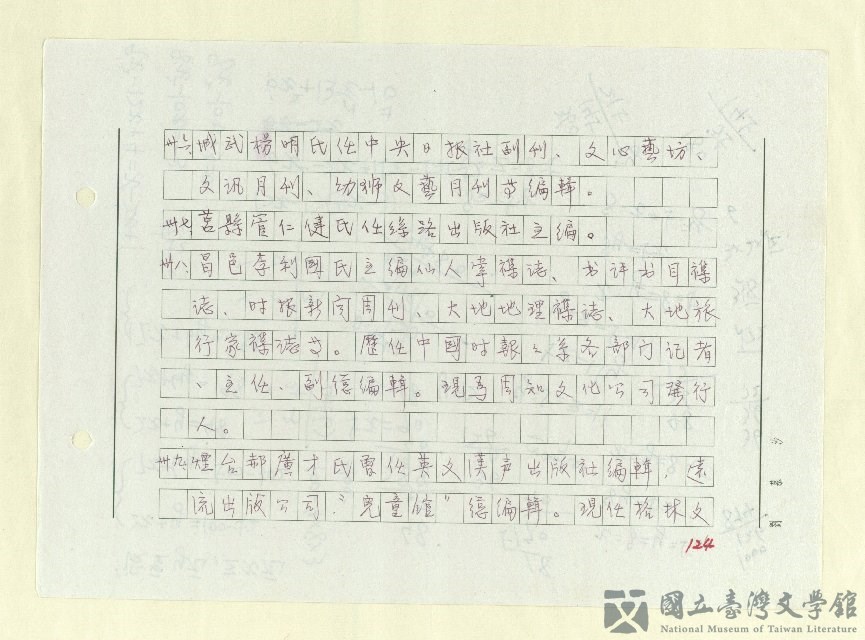 卅六、城武楊明氏任中央日报社副刊、文心藝坊、
文訊月刊、幼狮文藝月刊等編輯。
卅七莒縣管仁健氏任絲路出版社主編。
卅八、昌邑李利國氏主編仙人掌襍誌、书评书目襍
誌、时报新闻周刊、大地地理襍誌、大地旅
行家襍誌等。歷任中國时報系各部门记者
、主任、副總編輯。現為周知文化公司發行
人。
卅九、煙台郝廣才氏曾任英文漢声出版社編輯，遠
流出版公司"兒童舘"總編輯。現任格林文
124
國立臺灣文學館
National Museum of Taiwan Literature